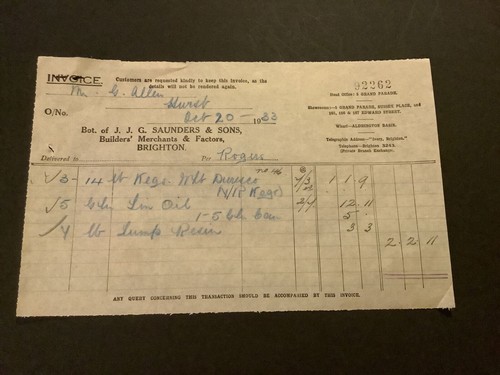 INVOICE.
Customers are requested kindly to keep this Invoice, as the
details will not be rendered again.
92262
Head Office: 8 GRAND PARADE.
Mr. G. Allen
Hurst
O/No.
Oct 20 – 1933
Showrooms—8 GRAND PARADE, SUSSEX PLACE, and
Wharf—ALDRINGTON BASIN.
Bot. of J. J. G. SAUNDERS & SONS,
Builders' Merchants & Factors,
BRIGHTON.
Telegraphic Address—"Ivory, Brighton."
Telephone—Brighton
(Private Branch Exchange).
Delivered to
Per Rogers
3 – 14 lb Kegs Wht Duresco 7/3 1 1 9
5 Gln Lin Oil 2/7 12 11
1 – 5 Gln Can 5 -
4 lb Lump Resin 3 3
2 - 2 - 11
ANY QUERY CONCERNING THIS TRANSACTION SHOULD BE ACCOMPANIED BY THIS INVOICE.